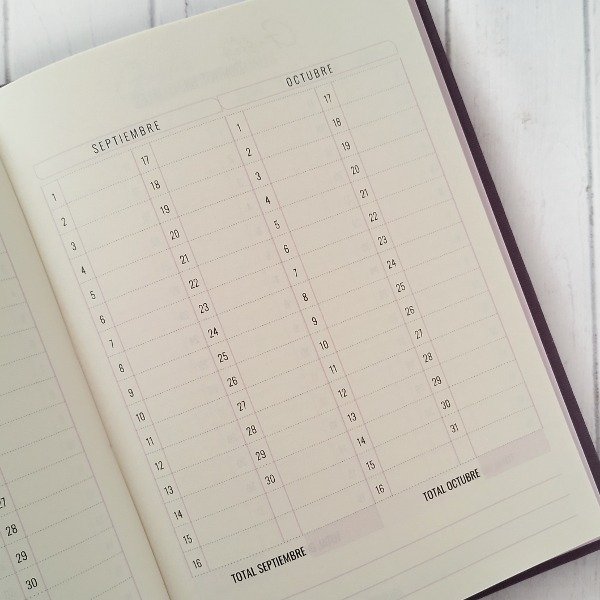 SEPTIEMBRE
OCTUBRE
1 17 1 17
2 18 2 18
3 19 3 19
4 20 4 20
5 21 5 21
6 22 6 22
7 23 7 23
8 24 8 24
9 25 9 25
10 26 10 26
11 27 11 27
12 28 12 28
13 29 13 29
14 30 14 30
15 15 31
16 16
TOTAL SEPTIEMBRE
TOTAL OCTUBRE
27
28
29
30